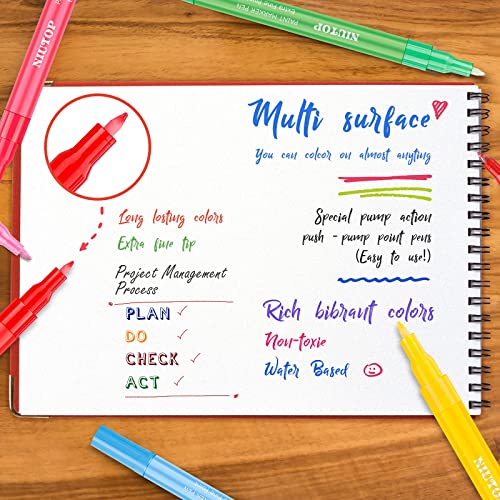 NIUTOP
PAINT MARKER PEN
NIUTOP
Multi surface
You can coleor on almost anyting
Long losting colors
Extra fine tip
Special pump action
push - pump point pens
(Easy to use!)
Project Management
Process
PLAN
DO
CHECK
ACT
Rich bibrant colors
Non-toxie
Water Based
NIUTOP